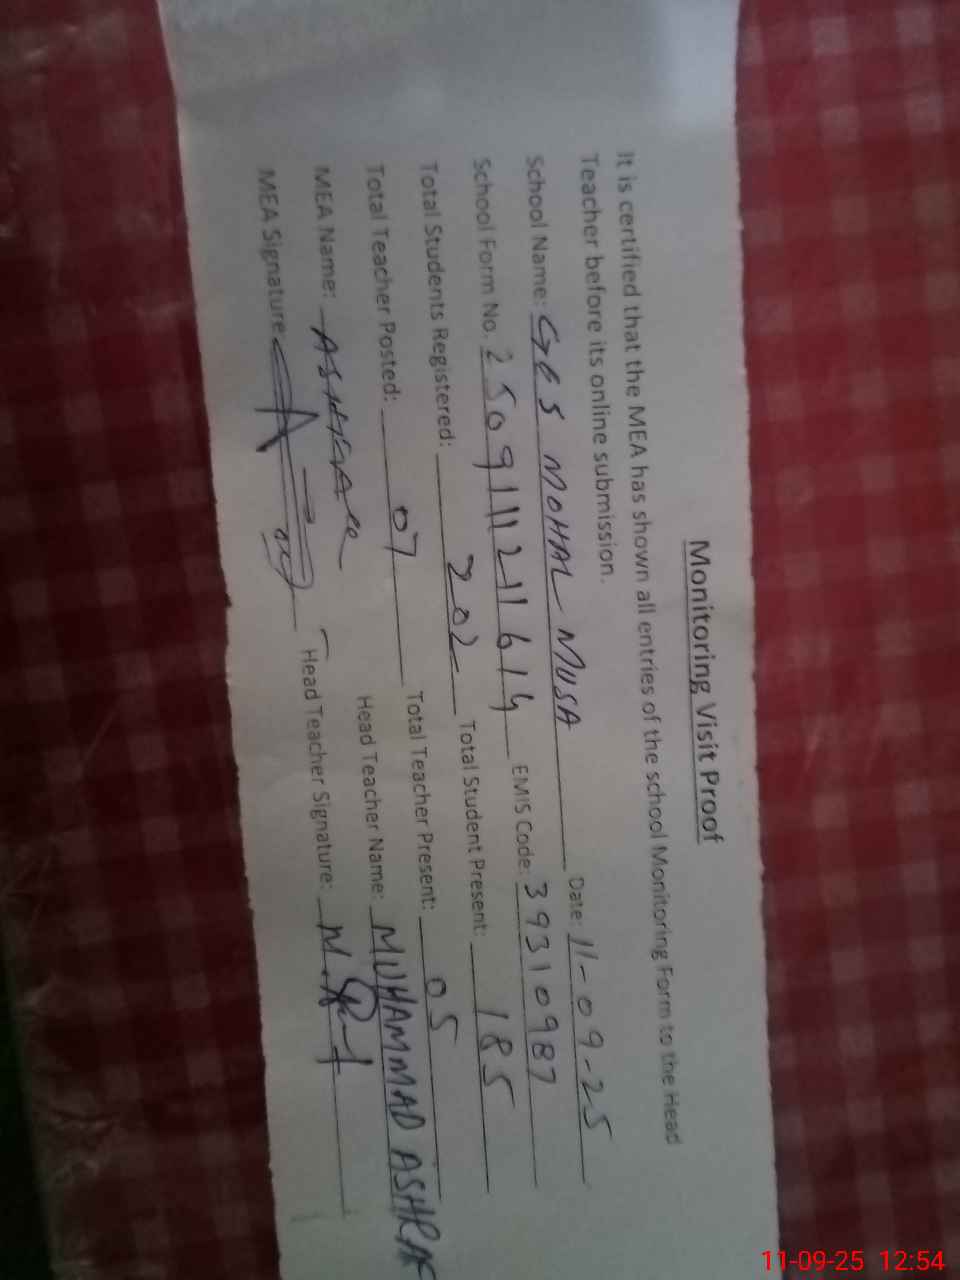 Monitoring Visit Proof
It is certified that the MEA has shown all entries of the school Monitoring Form to the Head
Teacher before its online submission.
School Name: GES MOHAL MUSA Date: 11-09-25
School Form No. 2509111211614 EMIS Code: 39310987
Total Students Registered: 202 Total Student Present: 185
Total Teacher Posted: 07 Total Teacher Present: 05
MEA Name: Head Teacher Name: MUHAMMAD ASHRAF
MEA Signature: Head Teacher Signature:
11-09-25 12:54